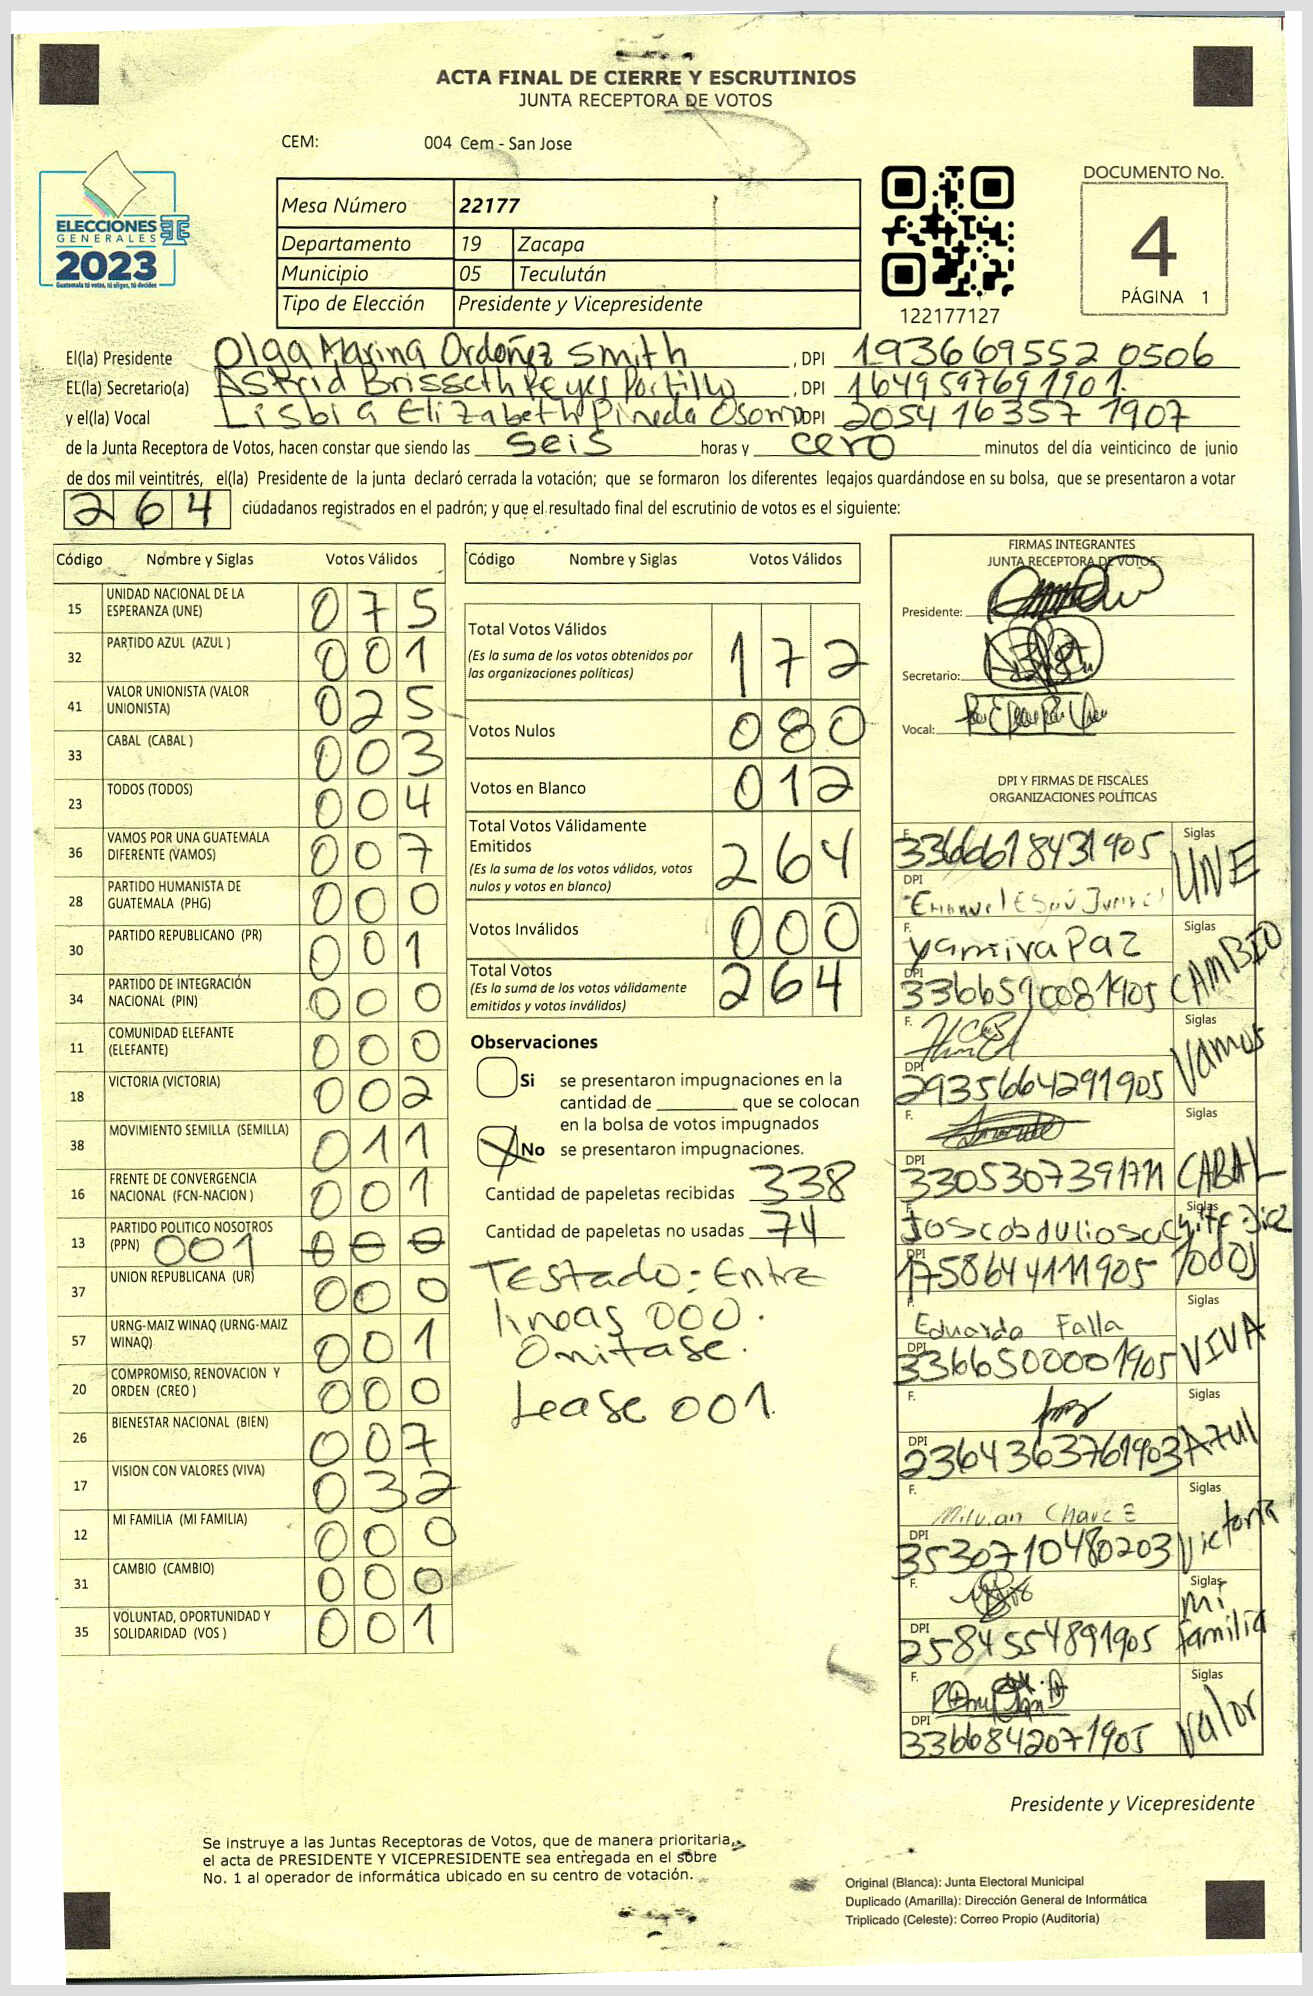 ACTA FINAL DE CIERRE Y ESCRUTINIOS
JUNTA RECEPTORA DE VOTOS
CEM: 004 Cem - San Jose
ELECCIONES
GENERALES
2023
Guatemala tú votas, tú eliges, tú decides
Mesa Número 22177
Departamento 19 Zacapa
Municipio 05 Teculután
Tipo de Elección Presidente y Vicepresidente
122177127
DOCUMENTO No.
4
PÁGINA 1
El(la) Presidente Olga Marina Ordoñez Smith , DPI 193669552 0506
EL(la) Secretario(a) Astrid Brisseth Reyes Portillo , DPI 1649597691901.
y el(la) Vocal Lisbi a Elizabeth Pineda Osorio DPI 2054 16357 1907
de la Junta Receptora de Votos, hacen constar que siendo las seis horas y cero minutos del día veinticinco de junio
de dos mil veintitrés, el(la) Presidente de la junta declaró cerrada la votación; que se formaron los diferentes legajos guardándose en su bolsa, que se presentaron a votar
264 ciudadanos registrados en el padrón; y que el resultado final del escrutinio de votos es el siguiente:
Código Nombre y Siglas Votos Válidos
15 UNIDAD NACIONAL DE LA ESPERANZA (UNE) 075
32 PARTIDO AZUL (AZUL ) 001
41 VALOR UNIONISTA (VALOR UNIONISTA) 025
33 CABAL (CABAL ) 003
23 TODOS (TODOS) 004
36 VAMOS POR UNA GUATEMALA DIFERENTE (VAMOS) 007
28 PARTIDO HUMANISTA DE GUATEMALA (PHG) 000
30 PARTIDO REPUBLICANO (PR) 001
34 PARTIDO DE INTEGRACIÓN NACIONAL (PIN) 000
11 COMUNIDAD ELEFANTE (ELEFANTE) 000
18 VICTORIA (VICTORIA) 002
38 MOVIMIENTO SEMILLA (SEMILLA) 011
16 FRENTE DE CONVERGENCIA NACIONAL (FCN-NACION ) 001
13 PARTIDO POLITICO NOSOTROS (PPN) 001 000
37 UNION REPUBLICANA (UR) 000
57 URNG-MAIZ WINAQ (URNG-MAIZ WINAQ) 001
20 COMPROMISO, RENOVACION Y ORDEN (CREO ) 000
26 BIENESTAR NACIONAL (BIEN) 007
17 VISION CON VALORES (VIVA) 032
12 MI FAMILIA (MI FAMILIA) 000
31 CAMBIO (CAMBIO) 000
35 VOLUNTAD, OPORTUNIDAD Y SOLIDARIDAD (VOS ) 001
Código Nombre y Siglas Votos Válidos
Total Votos Válidos 172
(Es la suma de los votos obtenidos por
las organizaciones políticas)
Votos Nulos 080
Votos en Blanco 012
Total Votos Válidamente
Emitidos 264
(Es la suma de los votos válidos, votos
nulos y votos en blanco)
Votos Inválidos 000
Total Votos 264
(Es la suma de los votos válidamente
emitidos y votos inválidos)
Observaciones
Si se presentaron impugnaciones en la
cantidad de ________ que se colocan
en la bolsa de votos impugnados
X No se presentaron impugnaciones.
Cantidad de papeletas recibidas 338
Cantidad de papeletas no usadas 74
Testado: Entre
lineas 000.
Omitase.
Lease 001.
FIRMAS INTEGRANTES
JUNTA RECEPTORA DE VOTOS
Presidente:
Secretario:
Vocal:
DPI Y FIRMAS DE FISCALES
ORGANIZACIONES POLÍTICAS
F. 3366618431905 Siglas UNE
DPI
F. Yamira Paz Siglas CAMBIO
DPI 3366590081905
F. Siglas Vamos
DPI 2935664291905
F. Siglas CABAL
DPI 3305307391711
F. Siglas Todos
DPI 1758644111905
F. Eduardo Falla Siglas VIVA
DPI 3366500001905
F. Siglas AZUL
DPI 2364363761903
F. Siglas Victoria
DPI 3530710480203
F. Siglas mi familia
DPI 2584554891905
F. Siglas Valor
DPI 3366842071905
Presidente y Vicepresidente
Se instruye a las Juntas Receptoras de Votos, que de manera prioritaria,
el acta de PRESIDENTE Y VICEPRESIDENTE sea entregada en el sobre
No. 1 al operador de informática ubicado en su centro de votación.
Original (Blanca): Junta Electoral Municipal
Duplicado (Amarilla): Dirección General de Informática
Triplicado (Celeste): Correo Propio (Auditoría)